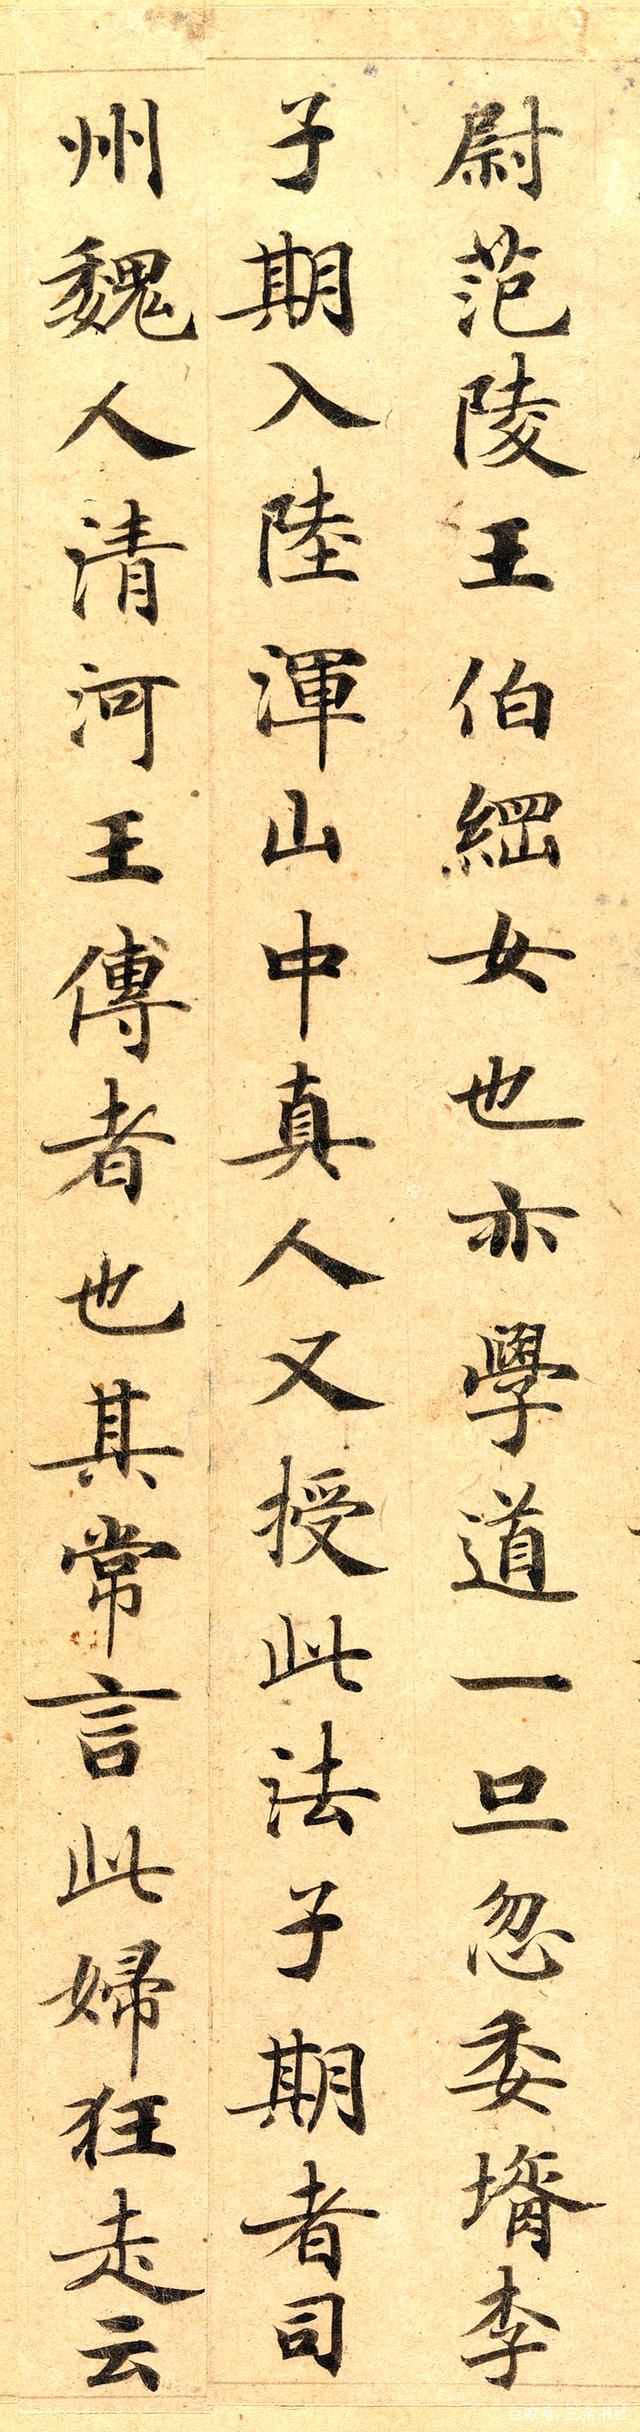 尉范陵王伯綱女也亦學道一旦忽委壻李
子期入陸渾山中真人又授此法子期者司
州魏人清河王傳者也其常言此婦狂走云